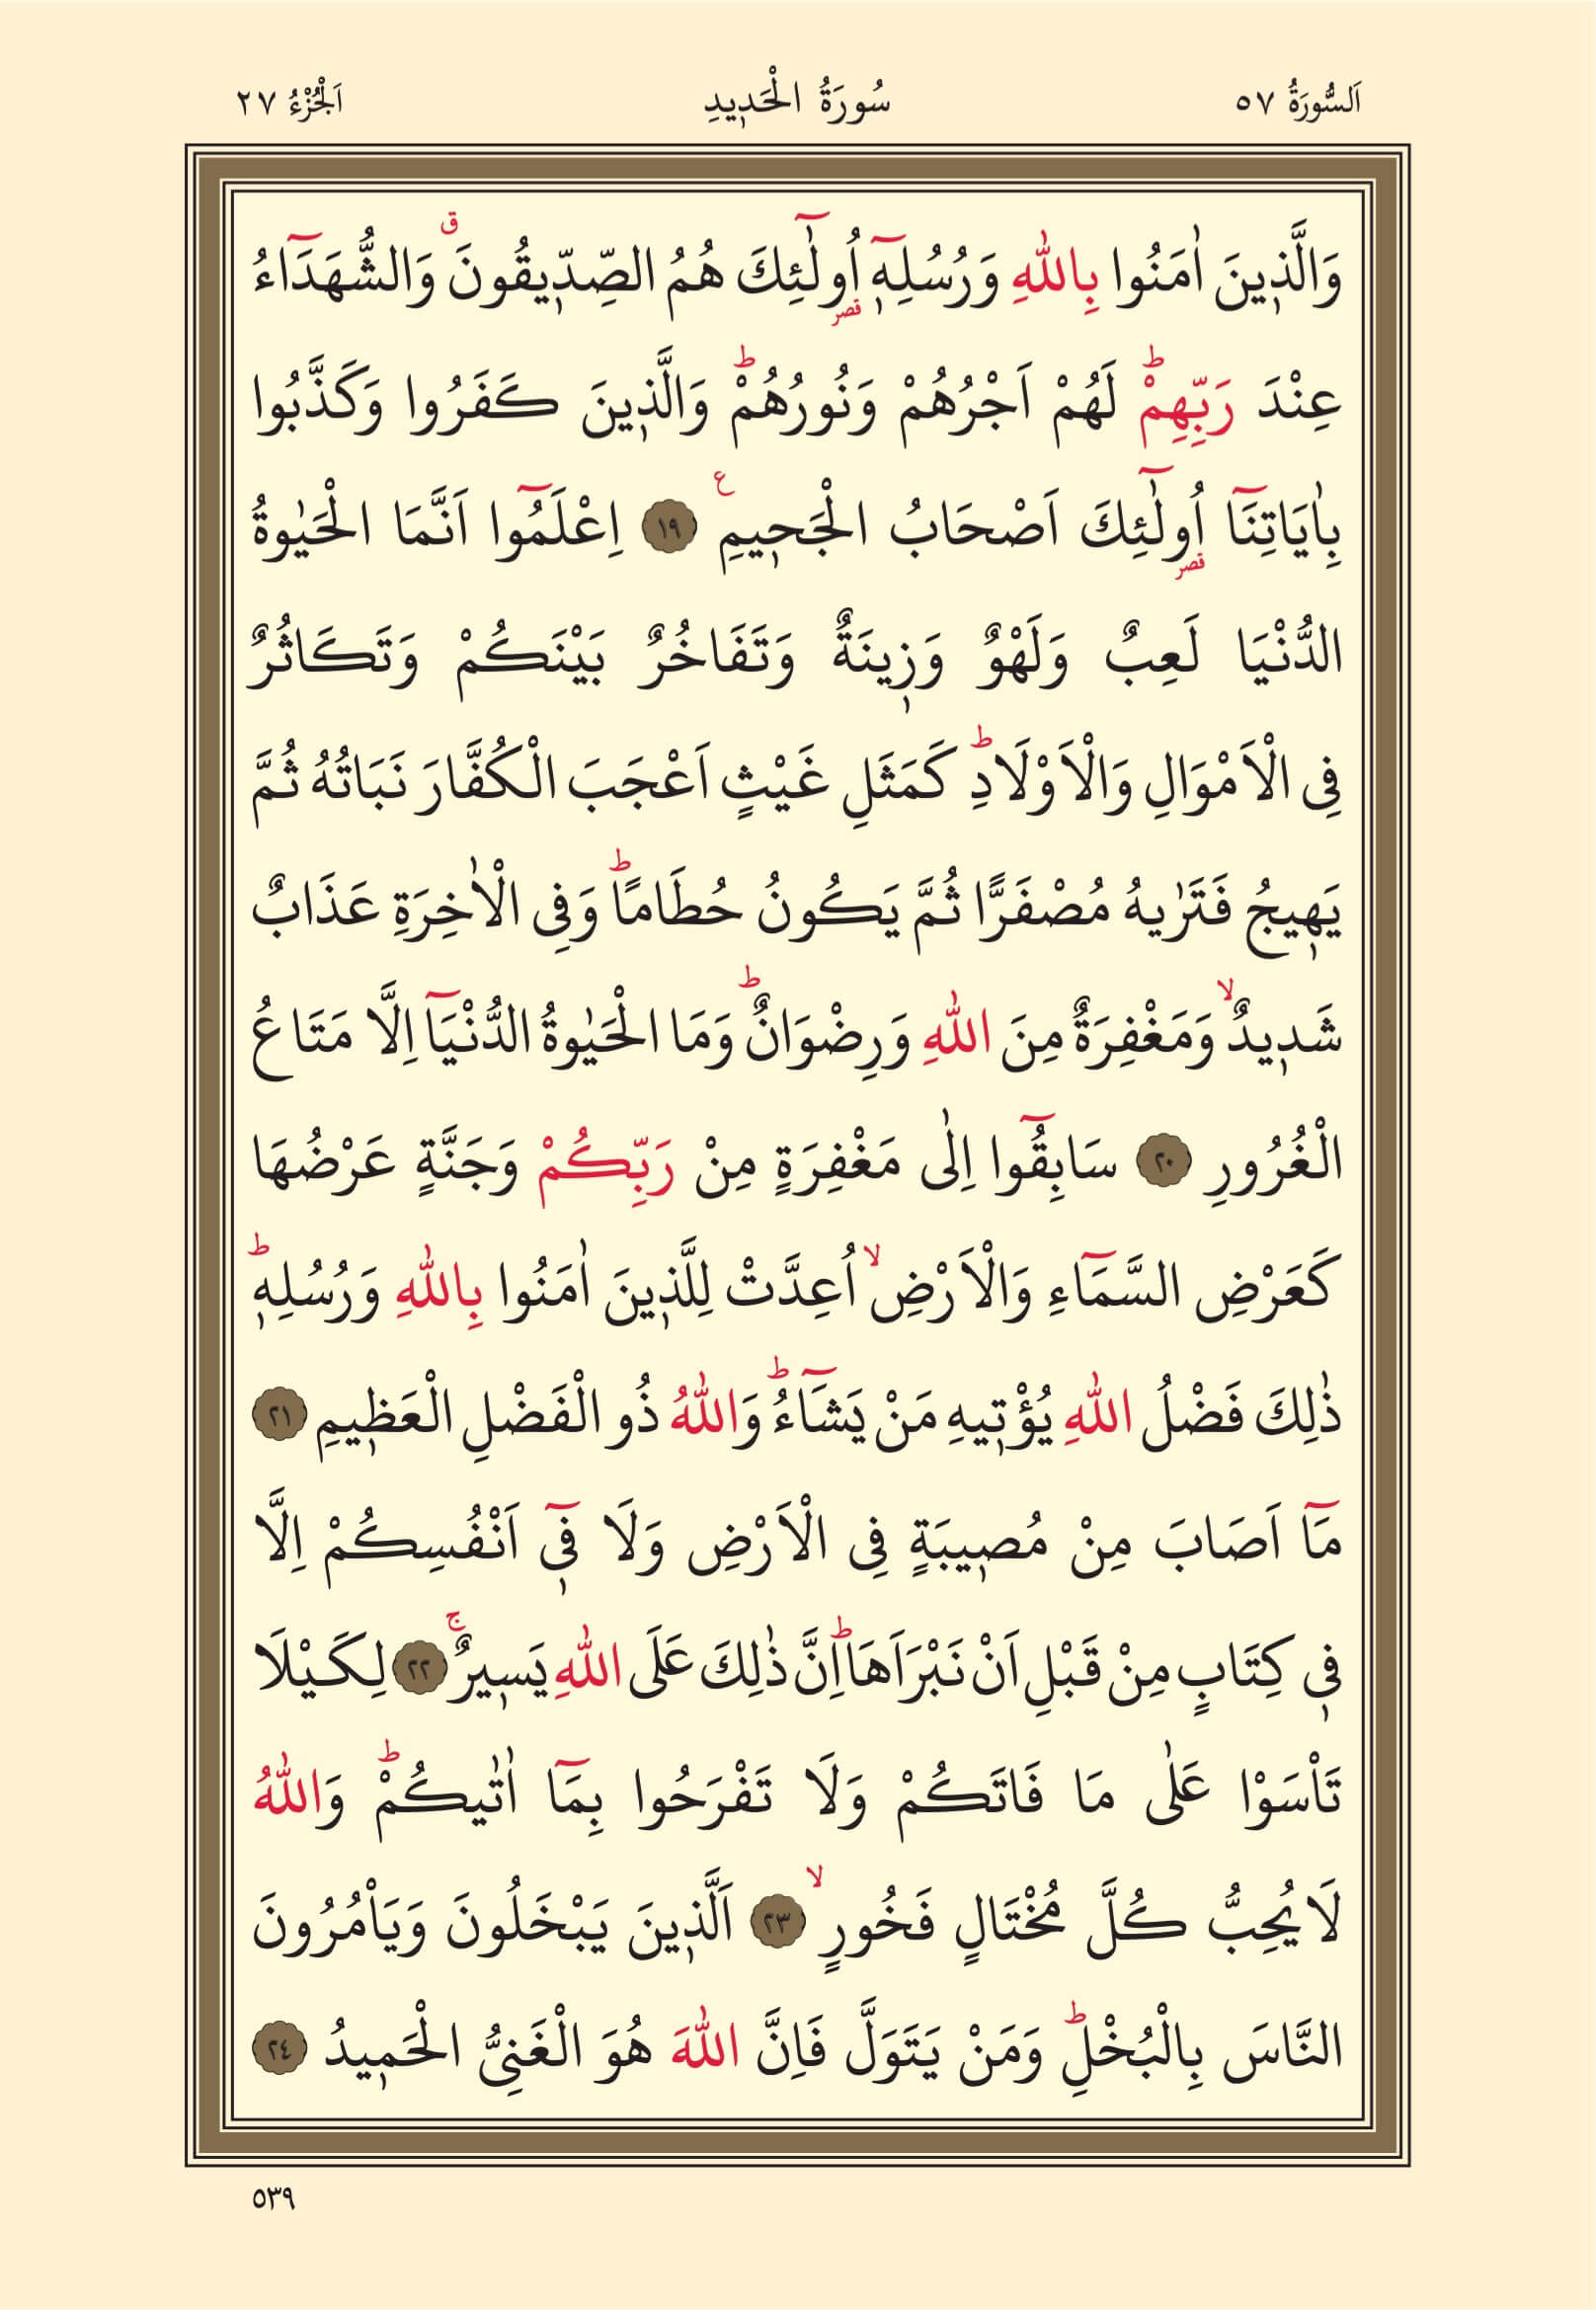 اَلسُّورَةُ ٥٧ سُورَةُ الْحَدٖيدِ اَلْجُزْءُ ٢٧
وَالَّذٖينَ اٰمَنُوا بِاللّٰهِ وَرُسُلِهٖٓ اُو۬لٰٓئِكَ هُمُ الصِّدّٖيقُونَۗ وَالشُّهَدَٓاءُ
عِنْدَ رَبِّهِمْؕ لَهُمْ اَجْرُهُمْ وَنُورُهُمْؕ وَالَّذٖينَ كَفَرُوا وَكَذَّبُوا
بِاٰيَاتِنَٓا اُو۬لٰٓئِكَ اَصْحَابُ الْجَحٖيمِࣖ ١٩ اِعْلَمُٓوا اَنَّمَا الْحَيٰوةُ
الدُّنْيَا لَعِبٌ وَلَهْوٌ وَزٖينَةٌ وَتَفَاخُرٌ بَيْنَكُمْ وَتَكَاثُرٌ
فِى الْاَمْوَالِ وَالْاَوْلَادِؕ كَمَثَلِ غَيْثٍ اَعْجَبَ الْكُفَّارَ نَبَاتُهُ ثُمَّ
يَهٖيجُ فَتَرٰيهُ مُصْفَرًّا ثُمَّ يَكُونُ حُطَامًاؕ وَفِى الْاٰخِرَةِ عَذَابٌ
شَدٖيدٌۙ وَمَغْفِرَةٌ مِنَ اللّٰهِ وَرِضْوَانٌؕ وَمَا الْحَيٰوةُ الدُّنْيَٓا اِلَّا مَتَاعُ
الْغُرُورِ ٢٠ سَابِقُٓوا اِلٰى مَغْفِرَةٍ مِنْ رَبِّكُمْ وَجَنَّةٍ عَرْضُهَا
كَعَرْضِ السَّمَٓاءِ وَالْاَرْضِۙ اُعِدَّتْ لِلَّذٖينَ اٰمَنُوا بِاللّٰهِ وَرُسُلِهٖؕ
ذٰلِكَ فَضْلُ اللّٰهِ يُؤْتٖيهِ مَنْ يَشَٓاءُؕ وَاللّٰهُ ذُو الْفَضْلِ الْعَظٖيمِ ٢١
مَٓا اَصَابَ مِنْ مُصٖيبَةٍ فِى الْاَرْضِ وَلَا فٖٓى اَنْفُسِكُمْ اِلَّا
فٖى كِتَابٍ مِنْ قَبْلِ اَنْ نَبْرَاَهَاؕ اِنَّ ذٰلِكَ عَلَى اللّٰهِ يَسٖيرٌۚ ٢٢ لِكَيْلَا
تَاْسَوْا عَلٰى مَا فَاتَكُمْ وَلَا تَفْرَحُوا بِمَٓا اٰتٰيكُمْؕ وَاللّٰهُ
لَا يُحِبُّ كُلَّ مُخْتَالٍ فَخُورٍۙ ٢٣ اَلَّذٖينَ يَبْخَلُونَ وَيَاْمُرُونَ
النَّاسَ بِالْبُخْلِؕ وَمَنْ يَتَوَلَّ فَاِنَّ اللّٰهَ هُوَ الْغَنِىُّ الْحَمٖيدُ ٢٤
٥٣٩